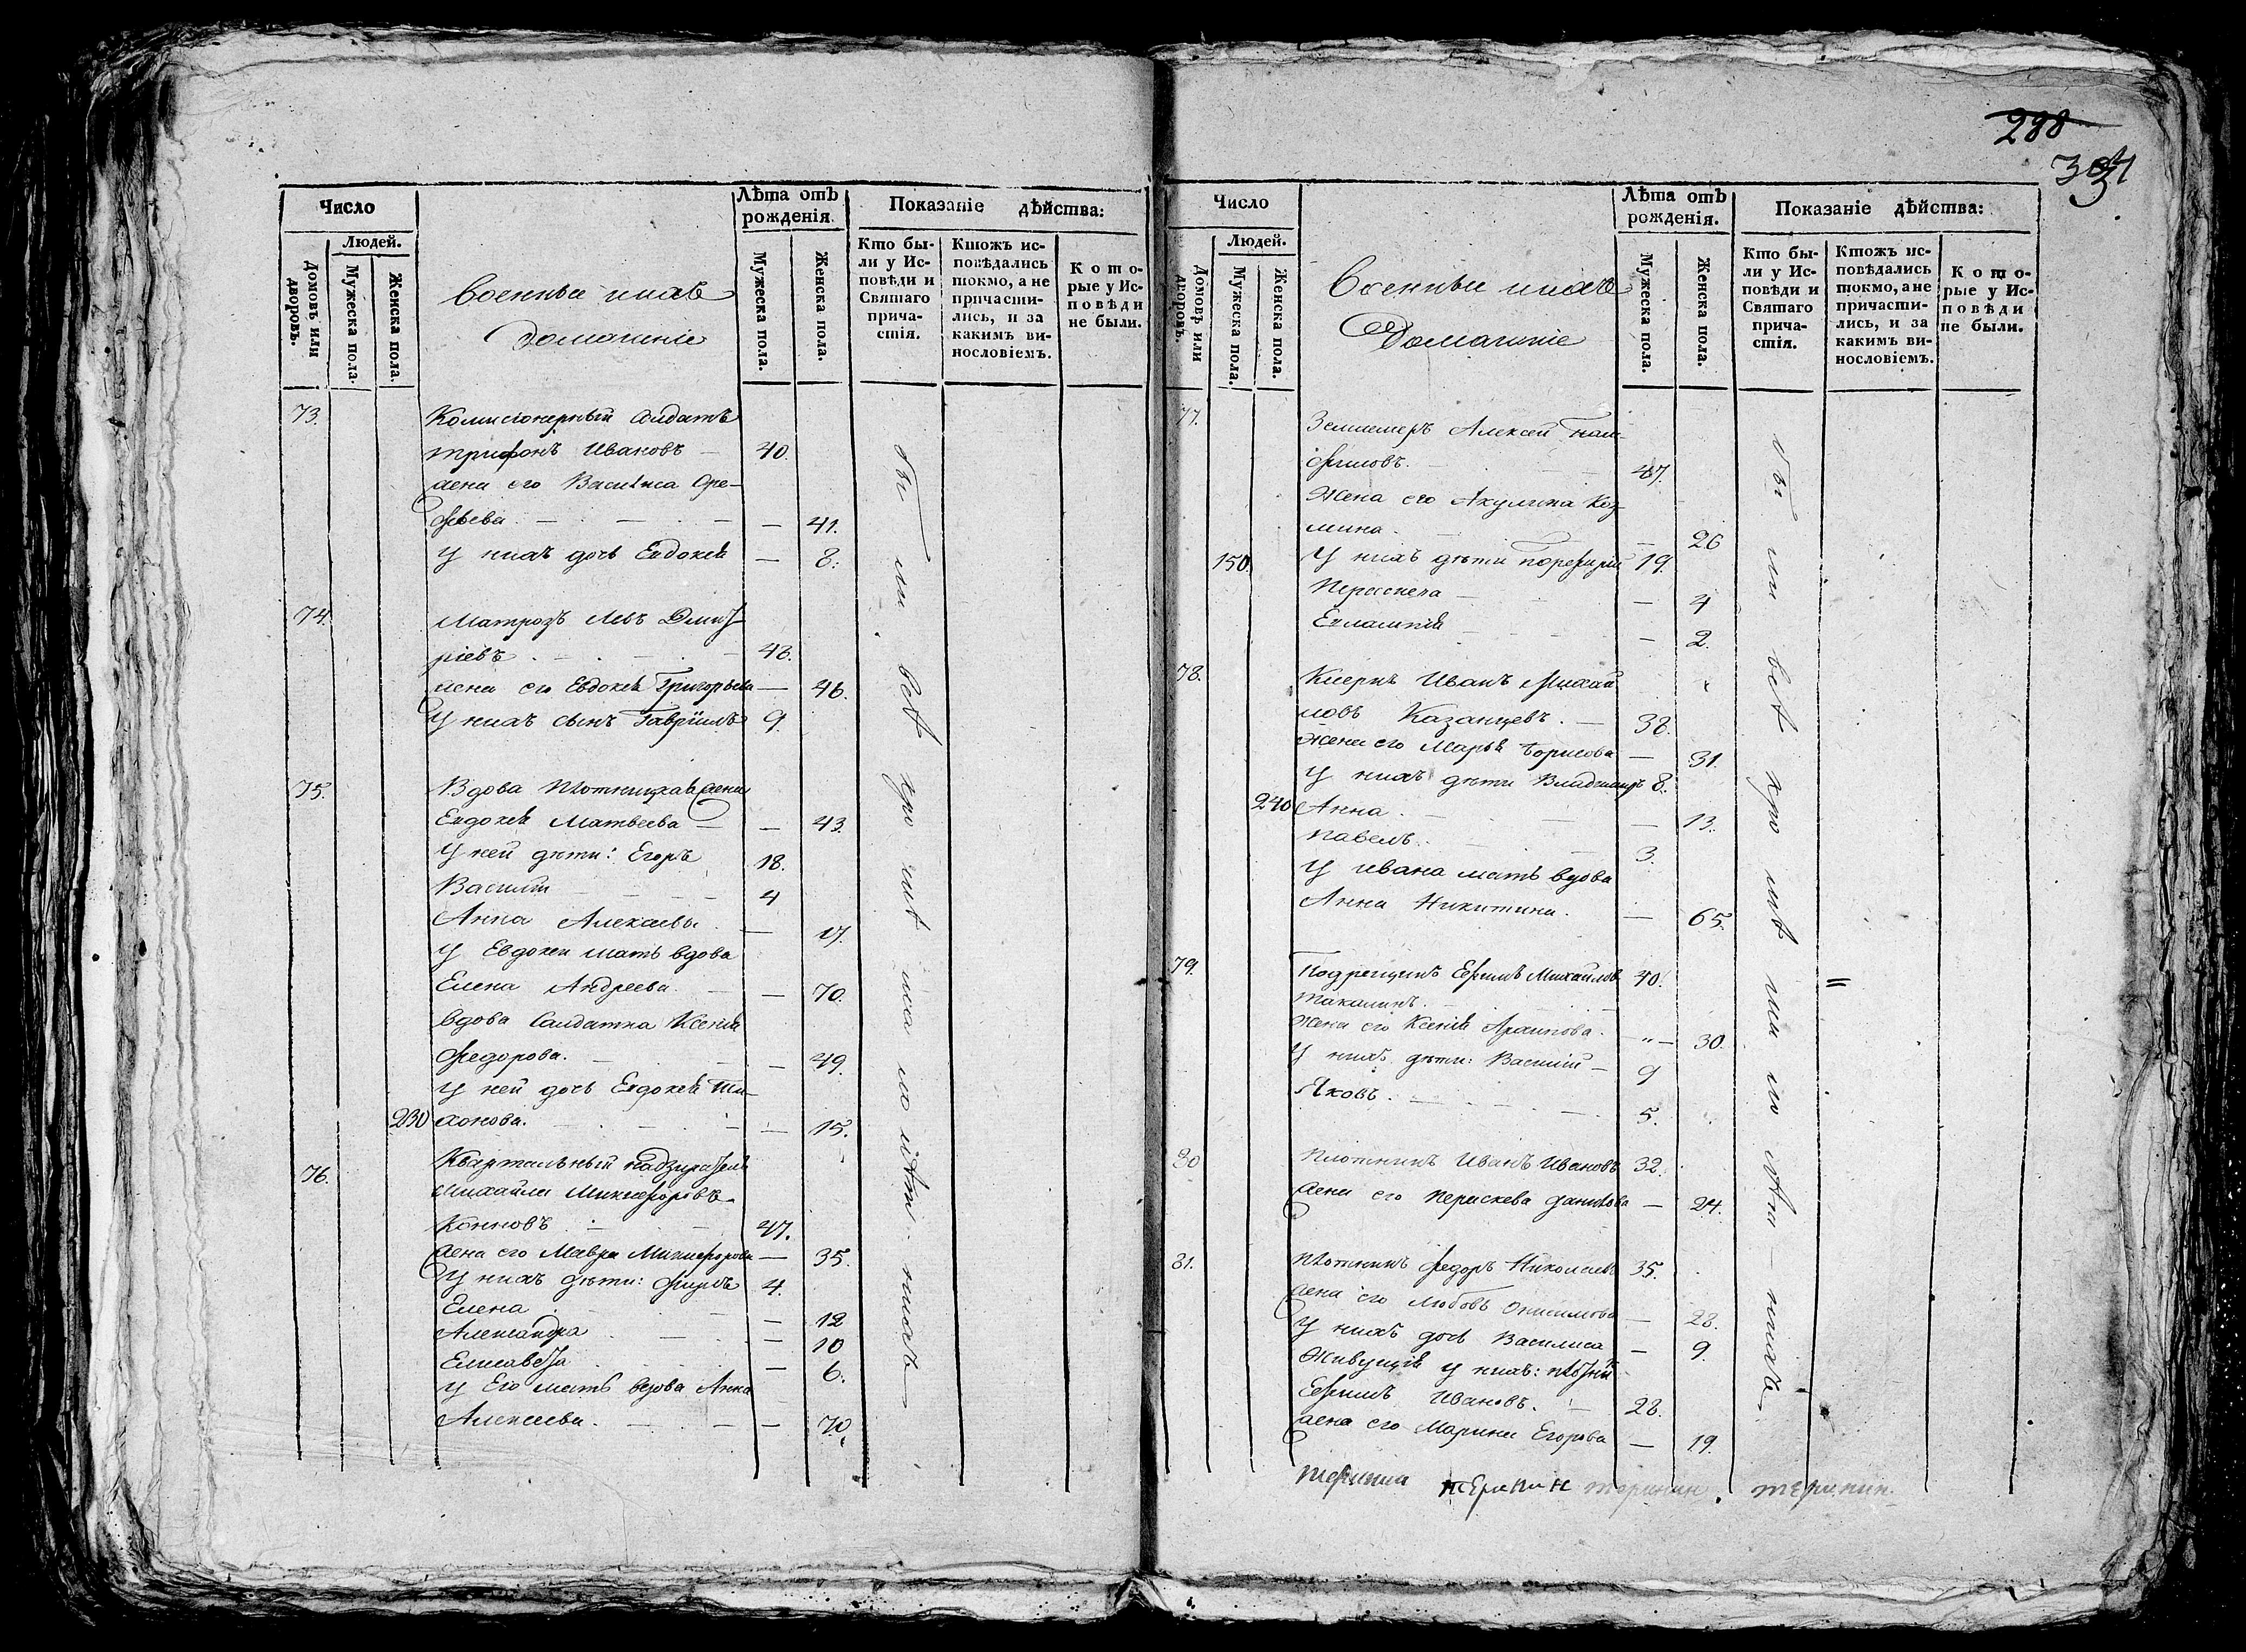 Число
Людей.
Домовъ или дворовъ.
Мужеска пола.
Женска пола.
Военные и ихъ
Домашніе
Лѣта отъ рожденія.
Мужеска пола.
Женска пола.
Показаніе дѣйства:
Кто бы-
ли у Ис-
повѣди и
Святаго
прича-
стія.
Ктожъ ис-
повѣдались
токмо, а не
причасти-
лись, и за
какимъ ви-
нословіемъ.
Кото-
рые у Ис-
повѣди
не были.
73. Комисіонерный Солдатъ
Трифонъ Ивановъ — 40.
жена его Василиса Ере-
феева — 41.
у нихъ дочь Евдокея — 8.
74. Матрозъ Левъ Дмит-
ріевъ — 43.
жена его Евдокея Григорьева — 46.
у нихъ сынъ Гавріилъ 9.
75. Вдова Плотницкая жена
Евдокея Матвеева — 43.
у ней дѣти: Егоръ 18.
Василій — 4
Анна Алексаева — 17.
у Евдокеи мать вдова
Елена Андреева — 70.
вдова Солдатка Ксенія
Федорова. — 49.
у ней дочь Евдокея Ти-
230 хонова. — 15.
76. Квартальный надзиратель
Михайла Никифоровъ
Конновъ — 47.
жена его Мавра Никифорова — 35.
у нихъ дѣти: 4.
Елена — 12
Александра — 10
Елисавета — 6.
у Его мать вдова Анна
Алексеева. — 70
были. всѣ кромѣ малолѣт. ихъ
288
Число
Людей.
Домовъ или дворовъ.
Мужеска пола.
Женска пола.
Военные и ихъ
Домашніе
Лѣта отъ рожденія.
Мужеска пола.
Женска пола.
Показаніе дѣйства:
Кто бы-
ли у Ис-
повѣди и
Святаго
прича-
стія.
Ктожъ ис-
повѣдались
токмо, а не
причасти-
лись, и за
какимъ ви-
нословіемъ.
Кото-
рые у Ис-
повѣди
не были.
77. Землемеръ Алексей Пам-
филовъ. — 47.
Жена его Акулина Коз-
мина — 26
150. у нихъ дѣти Порфирій 19.
Параскева — 4
Евлампія — 2.
78. Клеркъ Иванъ Михай
ловъ Казанцевъ. — 38.
Жена его Марья Борисова — 31.
у нихъ дѣти Владимиръ 8.
240 Анна — 13.
Павелъ — 3.
у Ивана мать вдова
Анна Никитина. — 65.
79. Подрещикъ Ефимъ Михайлов 40.
Макалинъ.
Жена его Ксенія Архипова. — 30.
у нихъ дѣти: Василій — 9
Яковъ. — 5.
80 Плотникъ Иванъ Ивановъ 32.
жена его Параскева Данилова — 24.
81. Плотникъ Федоръ Николаевъ 35.
жена его Любовь Онисимова — 28.
у нихъ дочь Василиса — 9.
Живущія у нихъ:
Ефимъ Ивановъ. 28.
жена его Марина Егорова — 19.
были всѣ кромѣ малолѣт — ихъ